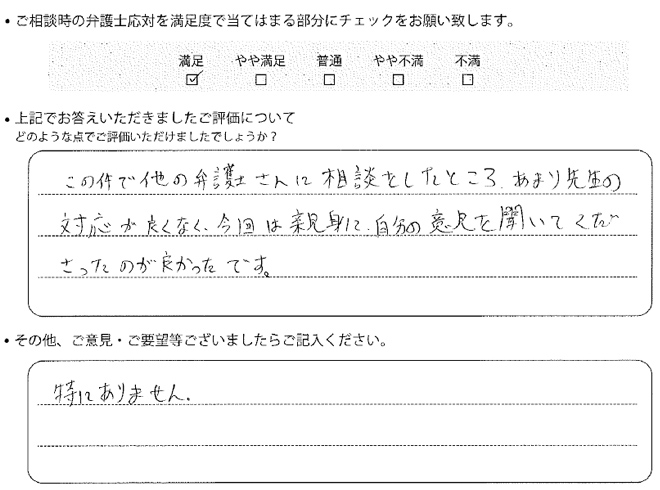 • ご相談時の弁護士応対を満足度で当てはまる部分にチェックをお願い致します。
満足 やや満足 普通 やや不満 不満
☑ □ □ □ □
• 上記でお答えいただきましたご評価について
どのような点でご評価いただけましたでしょうか？
この件で他の弁護士さんに相談をしたところ、あまり先生の
対応が良くなく、今回は親身に、自分の意見を聞いてくだ
さったのが良かったです。
• その他、ご意見・ご要望等ございましたらご記入ください。
特にありません。